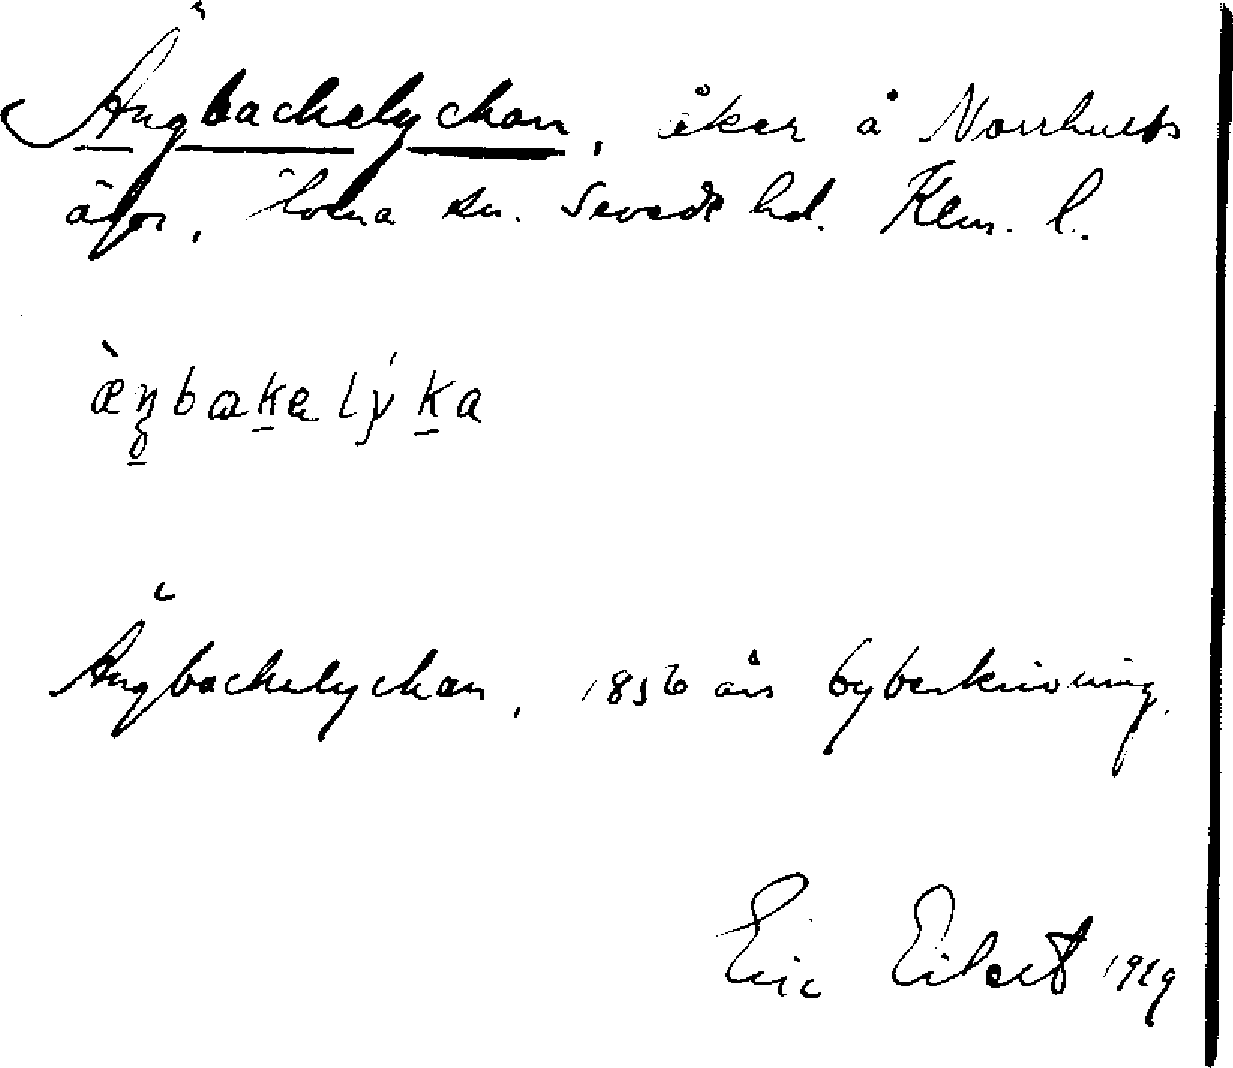 Ängbackelyckan, åker å Norrhults
ägor, Lönn sn. Sevede hd. Klm. l.
Ängbackelyckan, 1856 års bybeskrivning.
Eric Eckert 1919